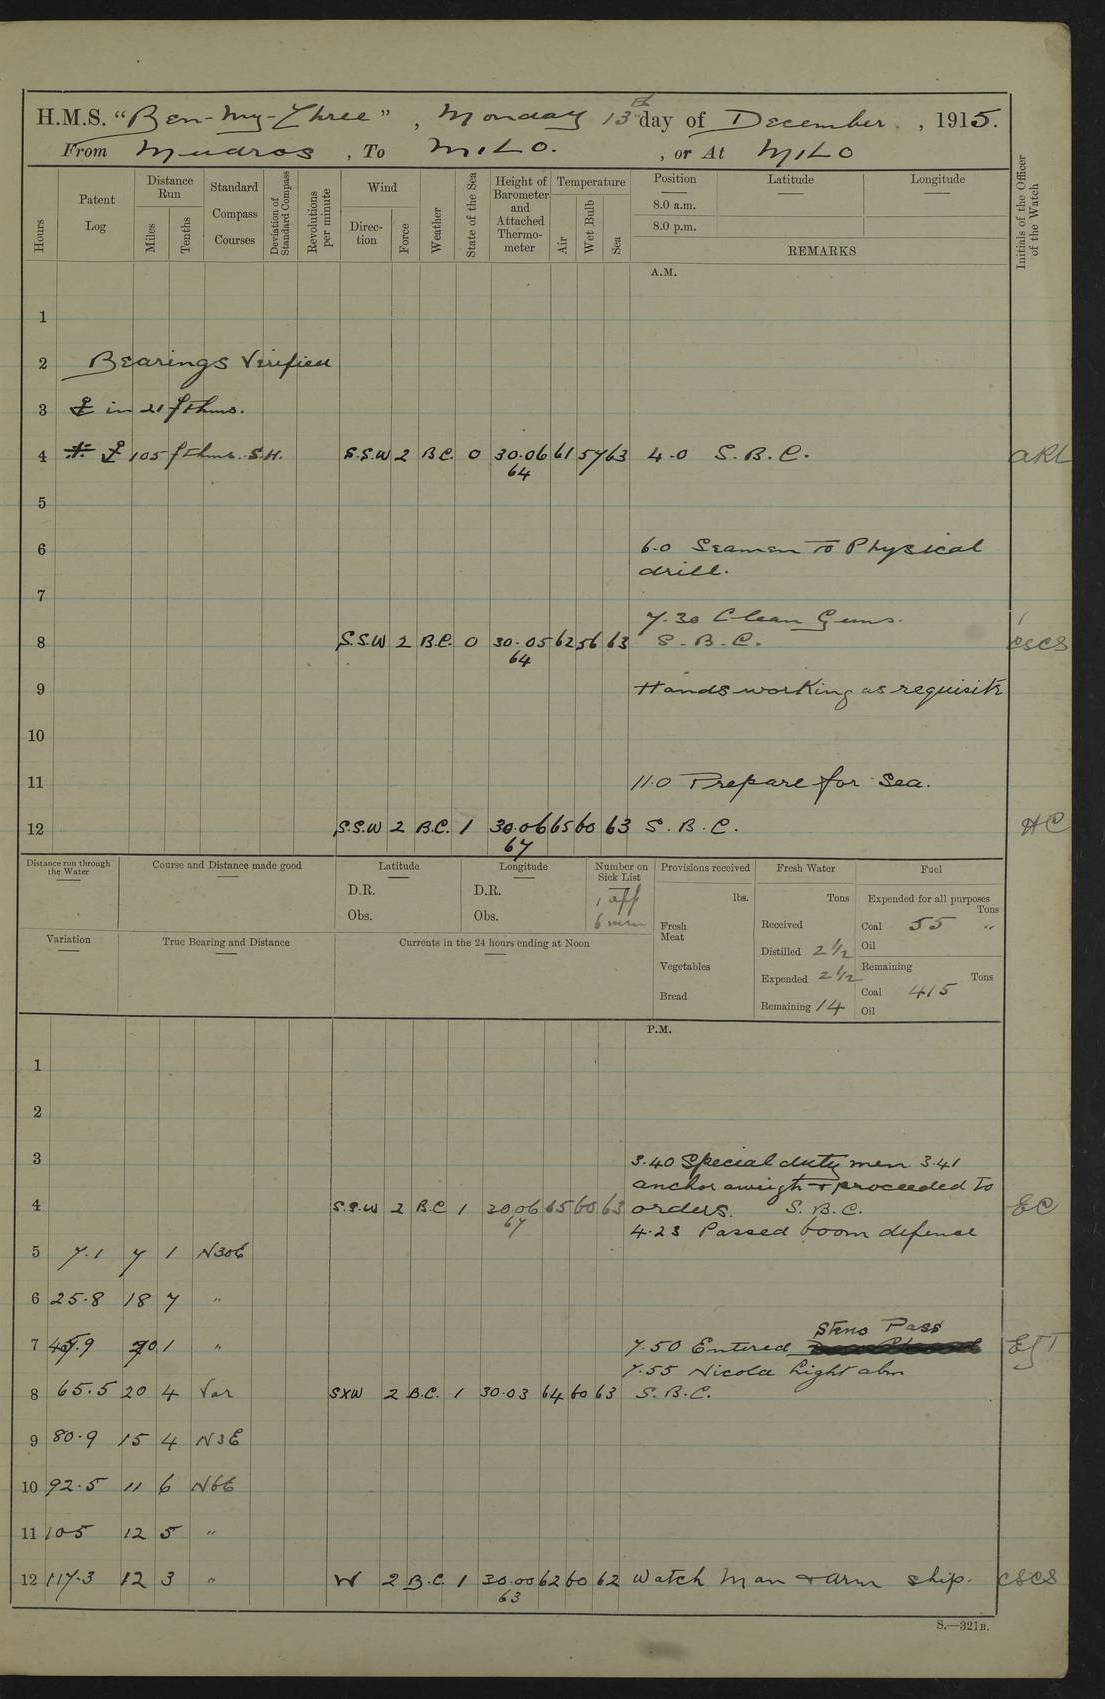 H.M.S. "Ben-My-Chree", Monday 13th day of December, 1915.
From Mudros, To MILO., or At MILO
Hours
Patent Log
Distance Run
Miles
Tenths
Standard Compass Courses
Deviation of Standard Compass
Revolutions per minute
Wind
Direction
Force
Weather
State of the Sea
Height of Barometer and Attached Thermometer
Temperature
Air
Wet Bulb
Sea
Position
8.0 a.m.
8.0 p.m.
Latitude
Longitude
REMARKS
Initials of the Officer of the Watch
A.M.
1
2 Bearings Verified
3 ⚓ in 21 fthms.
4 ⚓ 105 fthms. S.H. S.S.W 2 B.C. 0 30.06 61 57 63 4.0 S.B.C. ARL
64
5
6 6.0 Seamen to Physical
drill.
7
7.30 Clean Guns.
8 S.S.W 2 B.C. 0 30.05 62 56 63 S.B.C. CSCS
64
9 Hands working as requisite
10
11 11.0 Prepare for Sea.
12 S.S.W 2 B.C. 1 30.06 65 60 63 S.B.C. HC
67
Distance run through the Water
Course and Distance made good
Latitude
D.R.
Obs.
Longitude
D.R.
Obs.
Number on Sick List
1 off
6 men
Provisions received
lbs.
Fresh Meat
Vegetables
Bread
Fresh Water
Tons
Received
Distilled 2½
Expended 2½
Remaining 14
Fuel
Expended for all purposes
Tons
Coal 55 "
Oil
Remaining
Tons
Coal 415
Oil
Variation
True Bearing and Distance
Currents in the 24 hours ending at Noon
P.M.
1
2
3 3.40 Special duty men 3.41
anchor aweigh & proceeded to
4 S.S.W 2 B.C 1 30.06 65 60 63 orders. S.B.C. EC
67
4.23 Passed boom defence
5 7.1 7 1 N30E
6 25.8 18 7 "
Steno Pass
7 45.9 20 1 " 7.50 Entered EJT
7.55 Nicola Light abm
8 65.5 20 4 Var SXW 2 B.C. 1 30.03 64 60 63 S.B.C.
9 80.9 15 4 N3E
10 92.5 11 6 N6E
11 105 12 5 "
12 117.3 12 3 " W 2 B.C. 1 30.00 62 60 62 Watch Man & arm ship. CSCS
63
S.—321B.